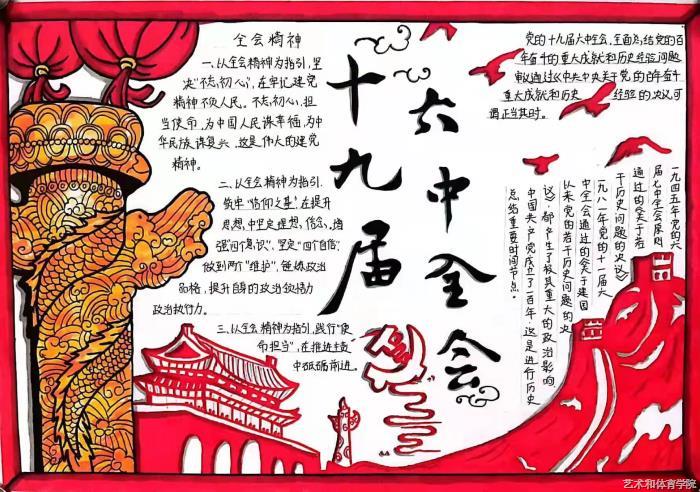 十九届
六中全会
全会精神
一、以全会精神为指引，坚
决“不忘初心”，在牢记建党
精神不负人民。不忘初心，担
当使命，为中国人民谋幸福，为中
华民族谋复兴，这是伟大的建党
精神。
二、以全会精神为指引，
筑牢“信仰之基”在提升
思想，中坚定理想，信念，增
强“四个意识”，坚定“四个自信”
做到两个“维护”，锤炼政治
品格，提升自身的政治领悟力
政治执行力。
三、以全会精神为指引，践行“使
命担当”，在推进
中砥砺前进。
党的十九届六中全会，全面总结党的百
年奋斗的重大成就和历史经验问题
审议通过《中共中央关于党的百年奋斗
重大成就和历史经验的决议可
谓正当其时。
一九四五年党的六
届七中全会原则
通过的《关于若
干历史问题的决议》
一九八一年党的十一届六
中全会通过的《关于建国
以来党的若干历史问题的决
议》，都产生了极其重大的政治影响，
中国共产党成立了一百年，这是进行历史
总结重要时间节点。
艺术和体育学院